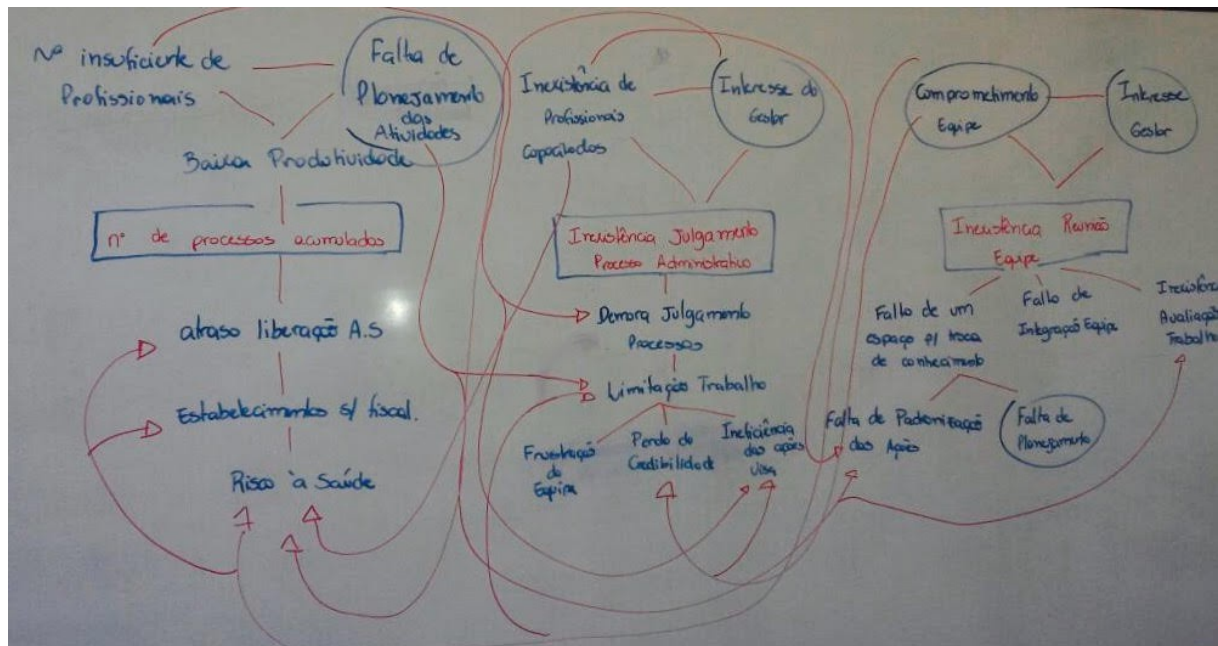 Nº insuficiente de
Profissionais
Falta de
Planejamento
das
Atividades
Baixa Produtividade
nº de processos acumulados
atraso liberação A.S
Estabelecimentos s/ fiscal.
Risco à Saúde
Inexistência de
Profissionais
Capacitados
Interesse do
Gestor
Inexistência Julgamento
Processo Administrativo
Demora Julgamento
Processos
Limitação Trabalho
Frustração
da
Equipe
Perda de
Credibilidade
Ineficiência
das ações
Visa
Comprometimento
Equipe
Interesse
Gestor
Inexistência Reunião
Equipe
Falta de um
espaço p/ troca
de conhecimento
Falta de
Integração Equipe
Inexistência
Avaliação
Trabalho
Falta de Padronização
das Ações
Falta de
Planejamento